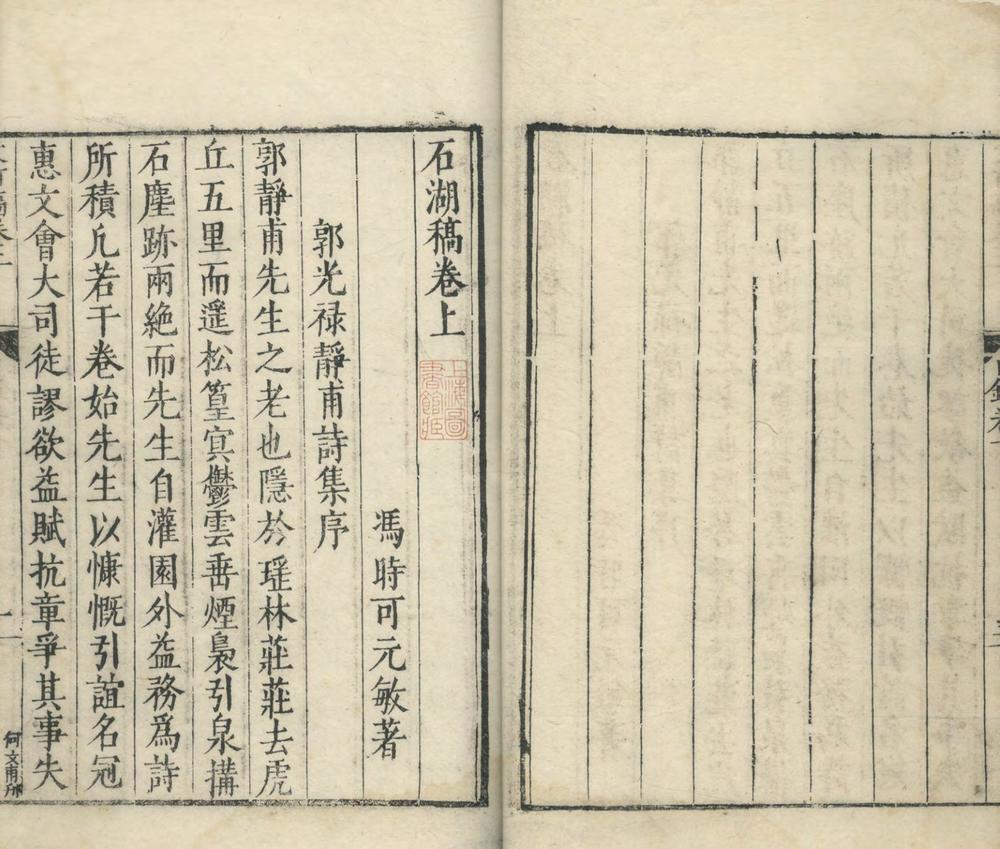 石湖稿卷上
上海圖書館藏
馮時可元敏著
郭光祿靜甫詩集序
郭靜甫先生之老也隱於瑶林莊莊去虎
丘五里而遥松篁㝠鬱雲垂煙裊引泉搆
石塵跡兩絶而先生自灌園外益務爲詩
所積凢若干卷始先生以慷慨引誼名冠
惠文會大司徒謬欲益賦抗章爭其事失
何文甫刻